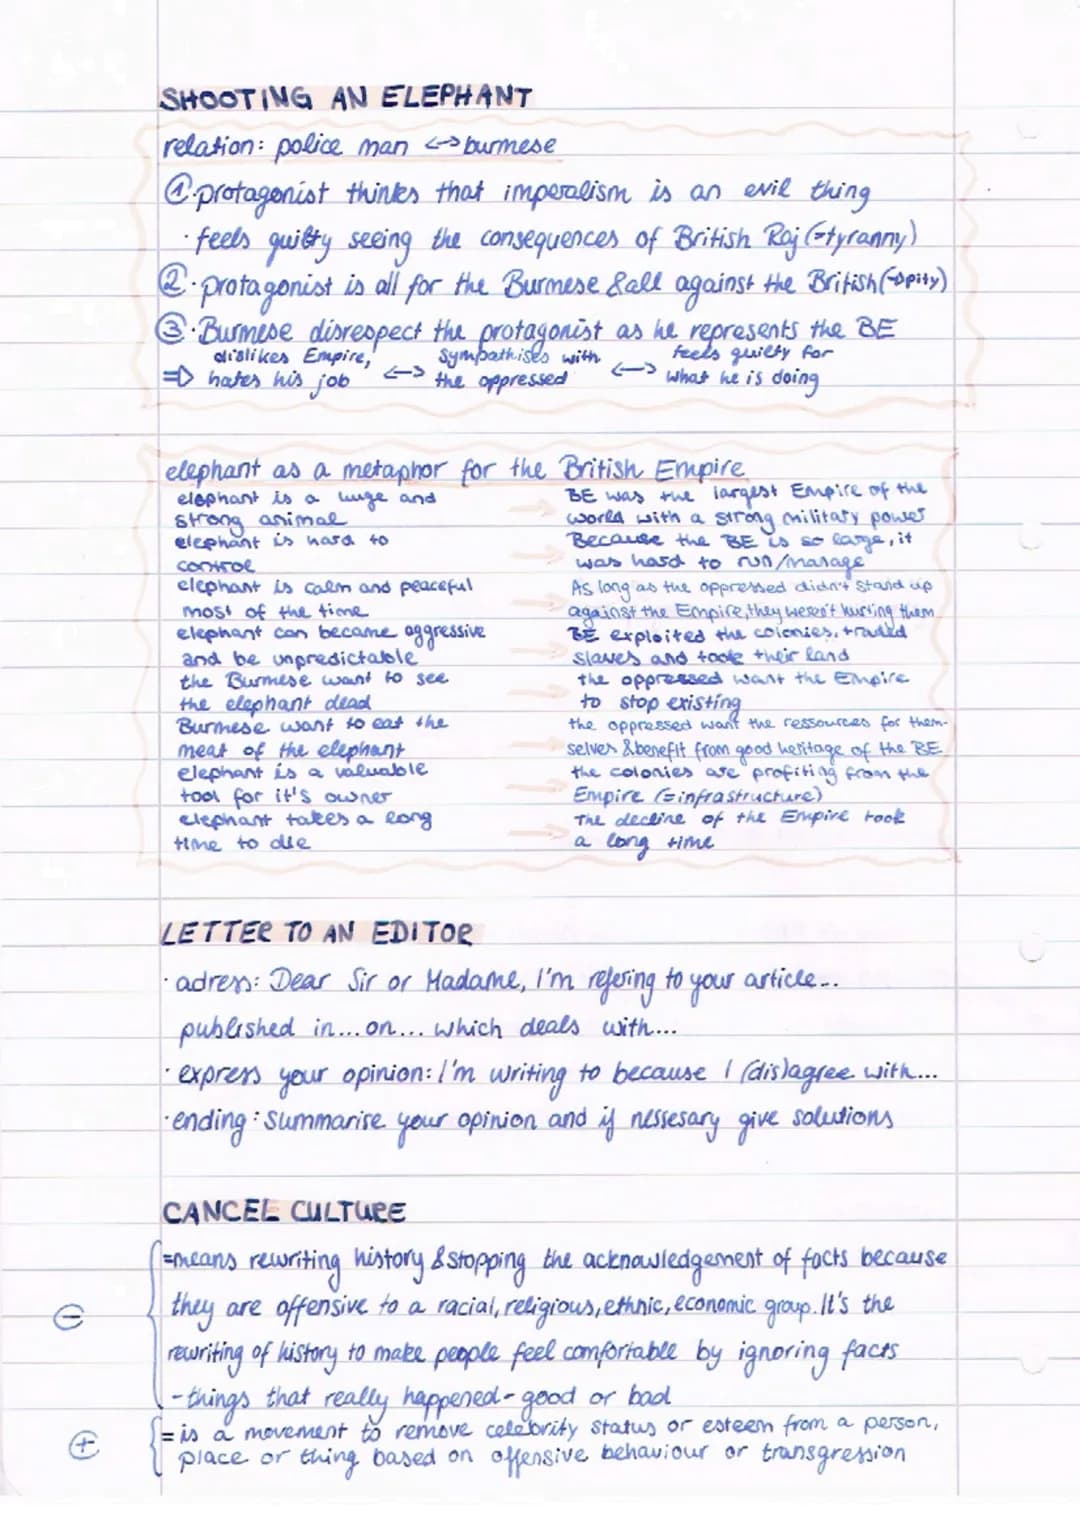 SHOOTING AN ELEPHANT
relation: police man <-> burmese
① · protagonist thinks that imperalism is an evil thing
· feels guilty seeing the consequences of British Raj (=tyranny)
② · protagonist is all for the Burmese & all against the British (->pity)
③ · Burmese disrespect the protagonist as he represents the BE
dislikes Empire, sympathises with feels guilty for
=> hates his job <-> the oppressed <-> what he is doing
elephant as a metaphor for the British Empire
elephant is a huge and → BE was the largest Empire of the
strong animal world with a strong military power
elephant is hard to → Because the BE is so large, it
control was hard to run/manage
elephant is calm and peaceful → As long as the oppressed didn't stand up
most of the time against the Empire, they weren't hurting them
elephant can became aggressive → BE exploited the colonies, traded
and be unpredictable slaves and took their land
the Burmese want to see → the oppressed want the Empire
the elephant dead to stop existing
Burmese want to eat the the oppressed want the ressources for them-
meat of the elephant → selves & benefit from good heritage of the BE
elephant is a valuable → the colonies are profiting from the
tool for it's owner Empire (=infrastructure)
elephant takes a long → The decline of the Empire took
time to die a long time
LETTER TO AN EDITOR
· adress: Dear Sir or Madame, I'm refering to your article...
published in... on... which deals with...
· express your opinion: I'm writing to because I (dis)agree with...
· ending: Summarise your opinion and if nessesary give solutions
CANCEL CULTURE
=means rewriting history & stopping the acknowledgement of facts because
⊖ they are offensive to a racial, religious, ethnic, economic group. It's the
rewriting of history to make people feel comfortable by ignoring facts
- things that really happened - good or bad
⊕ = is a movement to remove celebrity status or esteem from a person,
place or thing based on offensive behaviour or transgression